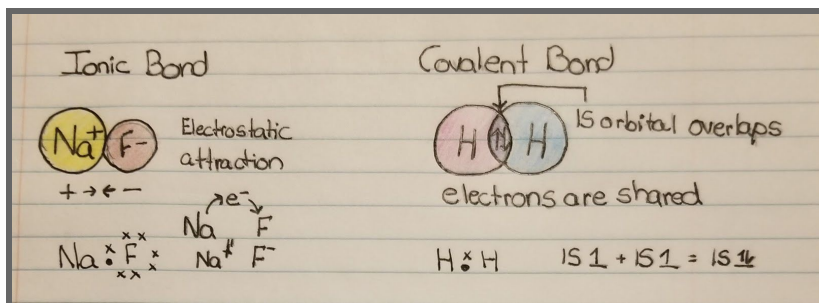 Ionic Bond
Na+ F-
Electrostatic
attraction
+ → ← -
e-
Na F
Na+ F-
Na F
Covalent Bond
H ⥮ H
1S orbital overlaps
electrons are shared
H H
1S 1 + 1S 1 = 1S 1⇂